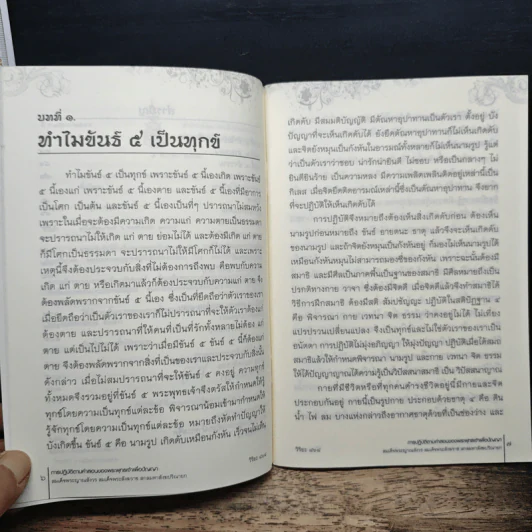 บทที่ ๑.
ทำไมขันธ์ ๕ เป็นทุกข์
ทำไมขันธ์ ๕ เป็นทุกข์ เพราะขันธ์ ๕ นี้เองเกิด เพราะขันธ์
๕ นี้เองแก่ เพราะขันธ์ ๕ นี้เองตาย และขันธ์ ๕ นี้เองที่มีอาการ
เป็นโศก เป็นต้น และขันธ์ ๕ นี้เองเป็นที่ๆ ปรารถนาไม่สมหวัง
เพราะในเมื่อจะต้องมีความเกิด ความแก่ ความตายเป็นธรรมดา
จะปรารถนาไม่ให้เกิด แก่ ตาย ย่อมไม่ได้ และต้องมีเกิด แก่ ตาย
ก็มีโศกเป็นธรรมดา จะปรารถนาไม่ให้มีโศกก็ไม่ได้ และเพราะ
เหตุนี้จึงต้องประจวบกับสิ่งที่ไม่ต้องการถึง คือพบกับความ
เกิด แก่ ตาย หรือเกิดมาแล้วก็ต้องประจวบกับความแก่ ตาย จึง
ต้องพลัดพรากจากขันธ์ ๕ นี้เอง ซึ่งเป็นที่ยึดถือว่าตัวเราของเรา
เมื่อยึดถือว่าตัวเราของเราก็ไม่ปรารถนาที่จะให้ตัวเราต้องแก่
ต้องตาย และปรารถนาที่ให้คนที่เป็นที่รักทั้งหลายไม่ต้อง แก่
ตาย แต่เป็นไปไม่ได้ เพราะว่าเมื่อมีขันธ์ ๕ ขันธ์ ๕ นี้ก็ต้องแก่
ต้องตาย จึงต้องพลัดพรากจากสิ่งที่เป็นของเราและประจวบกับสิ่งนั้น
ดังกล่าว เมื่อไม่สมปรารถนาที่จะให้ขันธ์ ๕ คงอยู่ ความทุกข์
ทั้งหมดจึงรวมอยู่ที่ขันธ์ ๕ พระพุทธเจ้าจึงตรัสให้กำหนดให้รู้
ทุกข์โดยความเป็นทุกข์แต่ละข้อ พิจารณาน้อมเข้ามากำหนดให้
รู้จักทุกข์โดยความเป็นทุกข์แต่ละข้อ หมายถึงหัดทำปัญญาให้
บังเกิดขึ้น ขันธ์ ๕ คือ นามรูป เกิดดับเหมือนกังหัน เร็วจนไม่เห็น
วิริยะ ๔๖๔
๖
การปฏิบัติตามคำสอนของพระพุทธเจ้าเพื่อปัญญา
สมเด็จพระญาณสังวร สมเด็จพระสังฆราช สกลมหาสังฆปริณายก
เกิดดับ มีสมมติบัญญัติ มีตัณหาอุปาทานเป็นตัวเรา ตั้งอยู่ บัง
ปัญญาที่จะเห็นเกิดดับได้ ยังยึดตัณหาอุปาทานก็ไม่เห็นเกิดดับ
และจิตยังหมุนเป็นกังหันในอารมณ์ทั้งหลายก็ไม่เห็นนามรูป รู้แต่
ว่าเป็นตัวเราว่าชอบ น่ารักน่ายินดี ไม่ชอบ หรือเป็นกลางๆ ไม่
ยินดียินร้าย เป็นความหลง มีความเพลิดเพลินติดอยู่เหล่านี้เป็น
กิเลส เมื่อจิตยึดติดอารมณ์เหล่านี้ซึ่งเป็นตัณหาอุปาทาน จึงยาก
ที่จะปฏิบัติให้เห็นเกิดดับได้
การปฏิบัติจึงหมายถึงต้องเห็นสิ่งเกิดดับก่อน ต้องเห็น
นามรูปก่อนหมายถึง ขันธ์ อายตนะ ธาตุ แล้วจึงจะเห็นเกิดดับ
ของนามรูป และถ้าจิตยังหมุนเป็นกังหันอยู่ ก็มองไม่เห็นนามรูปได้
เหมือนกังหันหมุนไม่สามารถมองซี่ของกังหัน เพราะฉะนั้นต้องมี
สมาธิ และมีศีลเป็นภาคพื้นเป็นฐานของสมาธิ มีศีลหมายถึงเป็น
ปรกติทางกาย วาจา ซึ่งต้องมีจิตมีศีล เมื่อจิตมีศีลแล้วจึงทำสมาธิให้
วิธีการฝึกสมาธิ ต้องมีสติ สัมปชัญญะ ปฏิบัติในสติปัฏฐาน ๔
คือ พิจารณา กาย เวทนา จิต ธรรม ว่าคงอยู่ไม่ได้ ไม่เที่ยง
แปรปรวนเปลี่ยนแปลง จึงเป็นทุกข์และไม่ใช่ตัวเราของเราเป็น
อนัตตา การปฏิบัติไม่มุ่งอภิญญา ให้มุ่งปัญญา ปฏิบัติสติเมื่อได้สงบ
สมาธิแล้วให้กำหนดพิจารณา นามรูป และกาย เวทนา จิต ธรรม
ให้ได้ปัญญาญาณได้ความรู้เป็นวิปัสสนาสมาธิ เป็น วิปัสสนาญาณ
กายที่มีชีวิตหรือที่ทุกคนดำรงชีวิตอยู่นี้มีกายและจิต
ประกอบกันอยู่ กายนี้เป็นรูปกาย ประกอบด้วยธาตุ ๔ คือ ดิน
น้ำ ไฟ ลม บางแห่งกล่าวถึงอากาศธาตุด้วยที่เป็นช่องว่าง และ
วิริยะ ๔๖๔
การปฏิบัติตามคำสอนของพระพุทธเจ้าเพื่อปัญญา
สมเด็จพระญาณสังวร สมเด็จพระสังฆราช สกลมหาสังฆปริณายก
๗